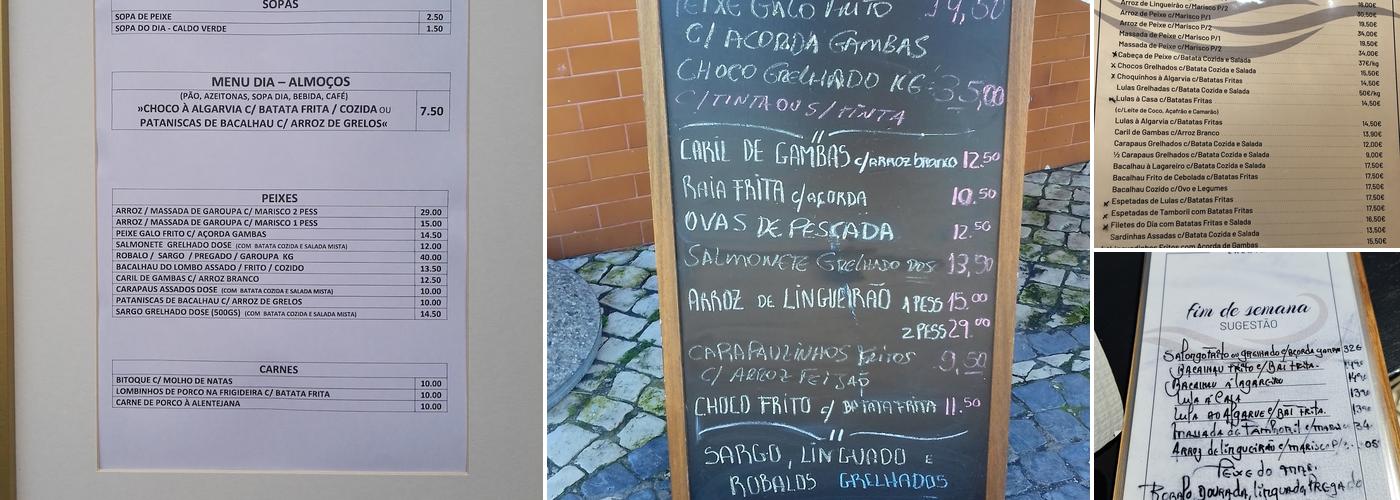 SOPAS
SOPA DE PEIXE 2.50
SOPA DO DIA - CALDO VERDE 1.50
MENU DIA – ALMOÇOS
(PÃO, AZEITONAS, SOPA DIA, BEBIDA, CAFÉ)
»CHOCO À ALGARVIA C/ BATATA FRITA / COZIDA OU
PATANISCAS DE BACALHAU C/ ARROZ DE GRELOS«
7.50
PEIXES
ARROZ / MASSADA DE GAROUPA C/ MARISCO 2 PESS 29.00
ARROZ / MASSADA DE GAROUPA C/ MARISCO 1 PESS 15.00
PEIXE GALO FRITO C/ AÇORDA GAMBAS 14.50
SALMONETE GRELHADO DOSE (COM BATATA COZIDA E SALADA MISTA) 12.00
ROBALO / SARGO / PREGADO / GAROUPA KG 40.00
BACALHAU DO LOMBO ASSADO / FRITO / COZIDO 13.50
CARIL DE GAMBAS C/ ARROZ BRANCO 12.50
CARAPAUS ASSADOS DOSE (COM BATATA COZIDA E SALADA MISTA) 10.00
PATANISCAS DE BACALHAU C/ ARROZ DE GRELOS 10.00
SARGO GRELHADO DOSE (500GS) (COM BATATA COZIDA E SALADA MISTA) 14.50
CARNES
BITOQUE C/ MOLHO DE NATAS 10.00
LOMBINHOS DE PORCO NA FRIGIDEIRA C/ BATATA FRITA 10.00
CARNE DE PORCO À ALENTEJANA 10.00
PEIXE GALO FRITO 19,50
C/ AÇORDA GAMBAS
CHOCO GRELHADO KG 35,00
C/TINTA OU S/TINTA
CARIL DE GAMBAS c/ARROZ branco 12.50
RAIA FRITA c/AÇORDA 10.50
OVAS DE PESCADA 12.50
SALMONETE GRELHADO DOS 13,50
ARROZ DE LINGUEIRÃO 1 PESS 15.00
2 PESS 29.00
CARAPAUZINHOS FRITOS 9,50
C/ ARROZ FEIJÃO
CHOCO FRITO c/ BATATA FRITA 11.50
SARGO, LINGUADO E
ROBALOS GRELHADOS
Arroz de Lingueirão c/Marisco P/2 16,00€
Arroz de Peixe c/Marisco P/1 30,50€
Arroz de Peixe c/Marisco P/2 19,50€
Massada de Peixe c/Marisco P/1 34,00€
Massada de Peixe c/Marisco P/2 19,50€
Cabeça de Peixe c/Batata Cozida e Salada 34,00€
Chocos Grelhados c/Batata Cozida e Salada 37€/kg
Choquinhos à Algarvia c/Batatas Fritas 15,50€
Lulas Grelhadas c/Batata Cozida e Salada 14,50€
Lulas à Casa c/Batatas Fritas 50€/kg
(c/Leite de Coco, Açafrão e Camarão) 14,50€
Lulas à Algarvia c/Batatas Fritas
Caril de Gambas c/Arroz Branco 14,50€
Carapaus Grelhados c/Batata Cozida e Salada 13,90€
½ Carapaus Grelhados c/Batata Cozida e Salada 12,00€
Bacalhau à Lagareiro c/Batata Cozida e Salada 9,00€
Bacalhau Frito de Cebolada c/Batatas Fritas 17,50€
Bacalhau Cozido c/Ovo e Legumes 17,50€
Espetadas de Lulas c/Batatas Fritas 17,50€
Espetadas de Tamboril com Batatas Fritas 17,50€
Filetes do Dia com Batatas Fritas 16,50€
Sardinhas Assadas c/Batata Cozida e Salada 13,50€
Fritos com Acorda de Gambas 15,50€
fim de semana
SUGESTÃO
grelhado c/açorda gambas 32€
Bacalhau frito c/Bat frita.
Bacalhau à lagareiro
Lula à Casa
Lula ao Algarve c/Bat frita.
massada de Tamboril c/maris 34
Arroz de lingueirão c/marisco P/
Peixe do
Robalo, Dourada, linguado, Pregado